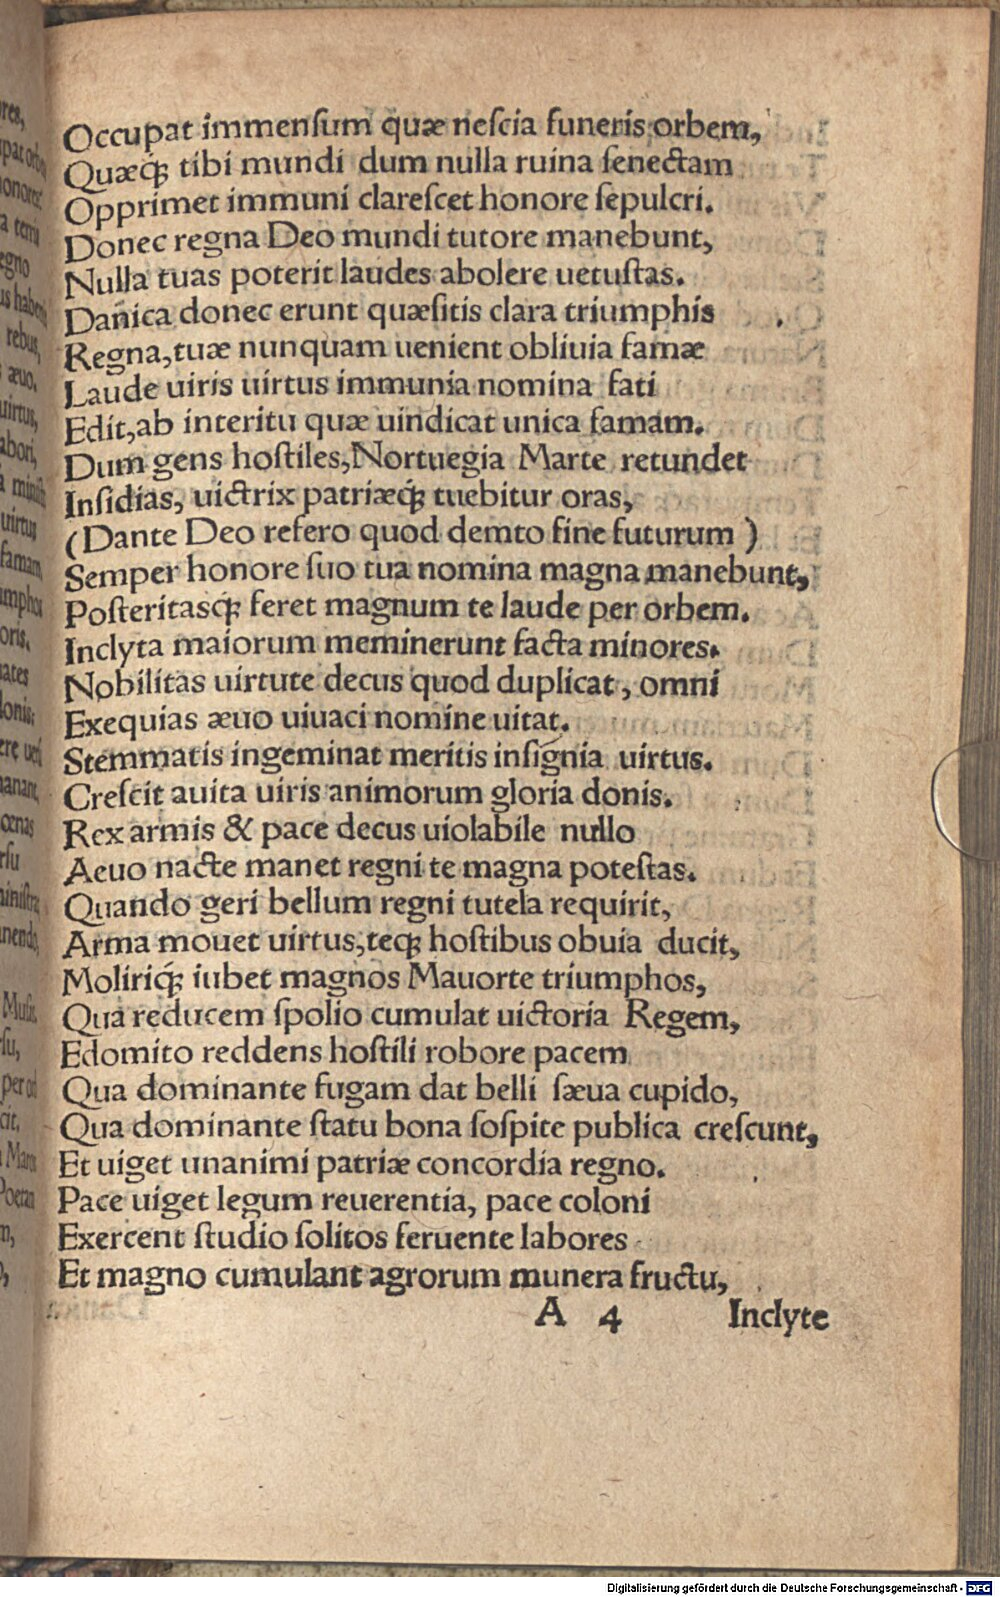 Occupat immenſum quæ neſcia funeris orbem,
Quæq́; tibi mundi dum nulla ruina ſenectam
Opprimet immuni clareſcet honore ſepulcri.
Donec regna Deo mundi tutore manebunt,
Nulla tuas poterit laudes abolere uetuſtas.
Danica donec erunt quæſitis clara triumphis
Regna, tuæ nunquam uenient obliuia famæ
Laude uiris uirtus immunia nomina fati
Edit, ab interitu quæ uindicat unica famam.
Dum gens hoſtiles, Nortuegia Marte retundet
Inſidias, uictrix patriæq́; tuebitur oras,
(Dante Deo refero quod demto fine futurum )
Semper honore ſuo tua nomina magna manebunt,
Poſteritasq́; feret magnum te laude per orbem.
Inclyta maiorum meminerunt facta minores.
Nobilitas uirtute decus quod duplicat, omni
Exequias æuo uiuaci nomine uitat.
Stemmatis ingeminat meritis inſignia uirtus.
Creſcit auita uiris animorum gloria donis.
Rex armis & pace decus uiolabile nullo
Aeuo nacte manet regni te magna poteſtas.
Quando geri bellum regni tutela requirit,
Arma mouet uirtus, teq; hoſtibus obuia ducit,
Moliriq́; iubet magnos Mauorte triumphos,
Qua reducem ſpolio cumulat uictoria Regem,
Edomito reddens hoſtili robore pacem
Qua dominante fugam dat belli ſæua cupido,
Qua dominante ſtatu bona ſoſpite publica creſcunt,
Et uiget unanimi patriæ concordia regno.
Pace uiget legum reuerentia, pace coloni
Exercent ſtudio ſolitos feruente labores
Et magno cumulant agrorum munera fructu,
A 4 Inclyte
Digitalisierung gefördert durch die Deutsche Forschungsgemeinschaft - DFG